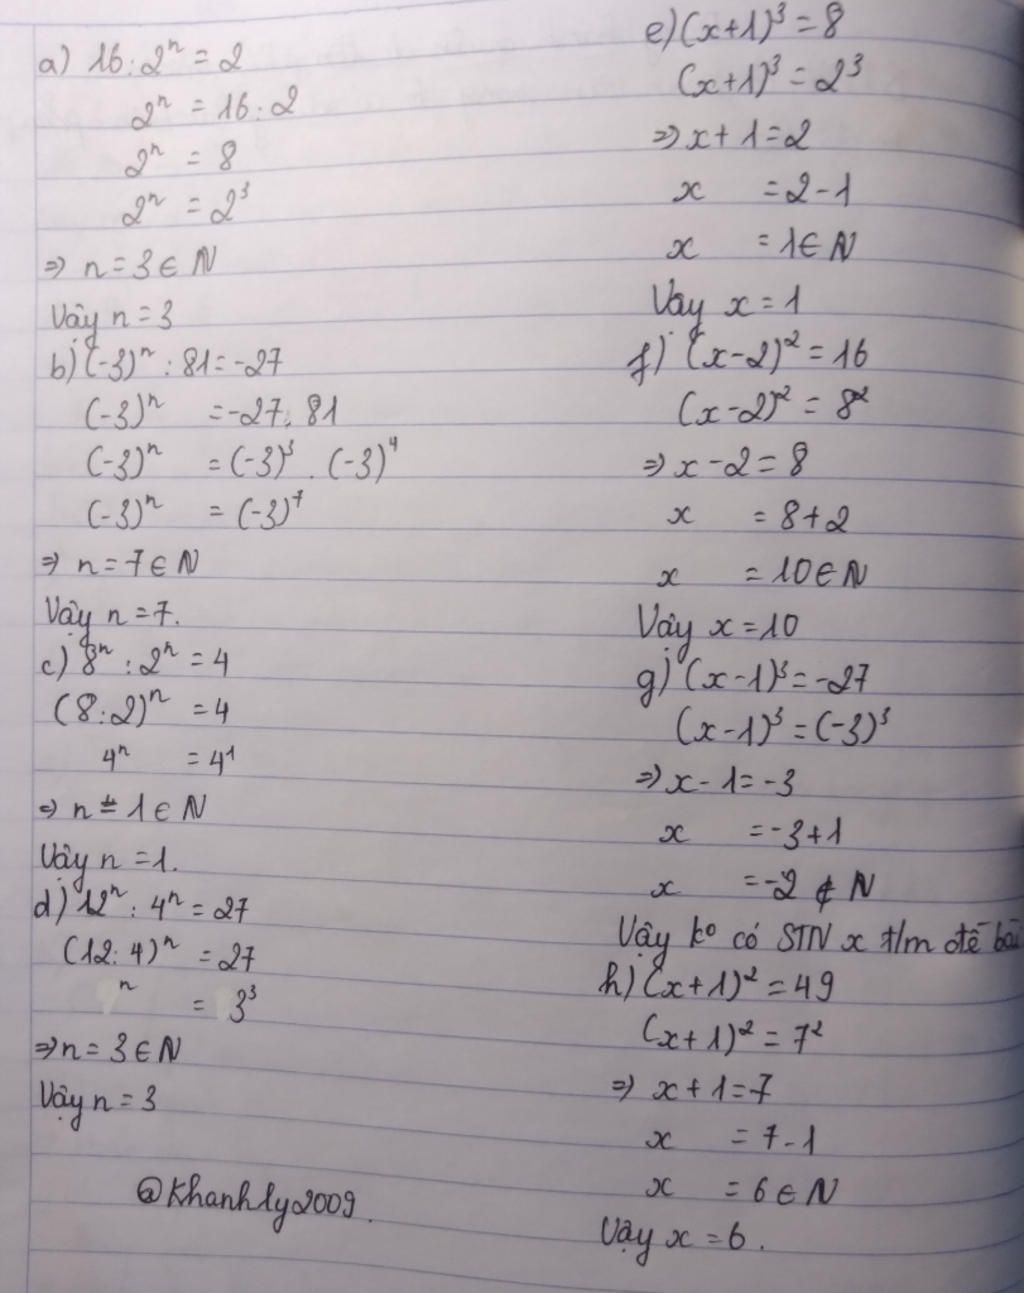 a) 16 : 2ⁿ = 2
2ⁿ = 16 : 2
2ⁿ = 8
2ⁿ = 2³
⇒ n = 3 ∈ N
Vậy n = 3
b) (-3)ⁿ : 81 = -27
(-3)ⁿ = -27 . 81
(-3)ⁿ = (-3)³ . (-3)⁴
(-3)ⁿ = (-3)⁷
⇒ n = 7 ∈ N
Vậy n = 7.
c) 8ⁿ : 2ⁿ = 4
(8 : 2)ⁿ = 4
4ⁿ = 4¹
⇒ n = 1 ∈ N
Vậy n = 1.
d) 12ⁿ : 4ⁿ = 27
(12 : 4)ⁿ = 27
ⁿ = 3³
⇒ n = 3 ∈ N
Vậy n = 3
@Khanhly2009.
e) (x+1)³ = 8
(x+1)³ = 2³
⇒ x + 1 = 2
x = 2 - 1
x = 1 ∈ N
Vậy x = 1
f) (x-2)² = 16
(x-2)² = 8²
⇒ x - 2 = 8
x = 8 + 2
x = 10 ∈ N
Vậy x = 10
g) (x-1)³ = -27
(x-1)³ = (-3)³
⇒ x - 1 = -3
x = -3 + 1
x = -2 ∉ N
Vậy ko có STN x t/m đề bài
h) (x+1)² = 49
(x+1)² = 7²
⇒ x + 1 = 7
x = 7 - 1
x = 6 ∈ N
Vậy x = 6.